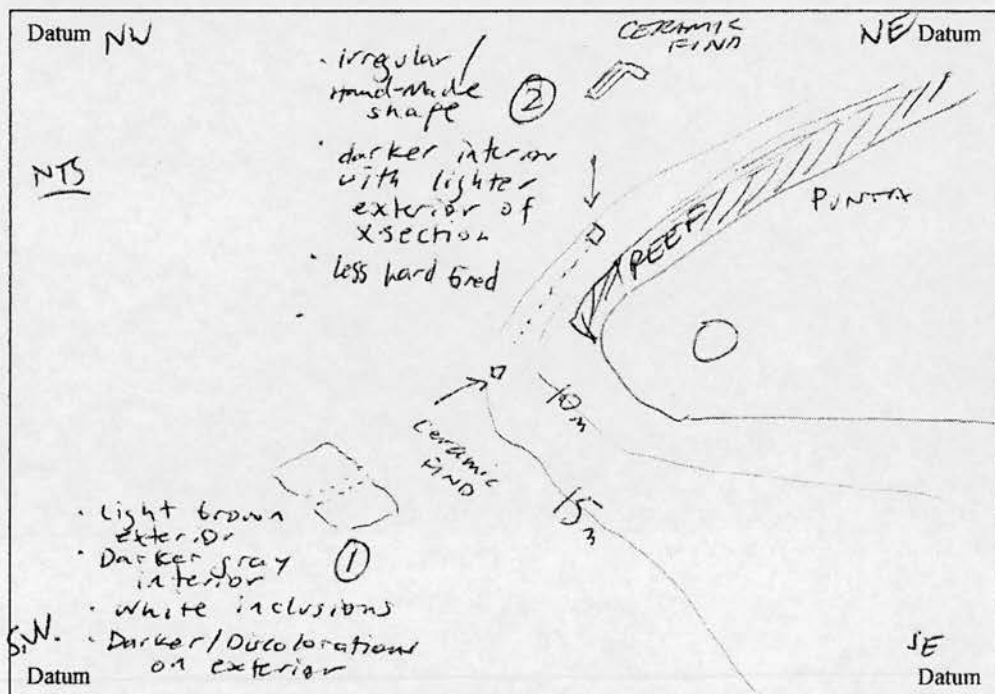 Datum NW
NE Datum
CERAMIC
FIND
· irregular/
Hand-Made
shape
②
· darker interior
with lighter
exterior of
xsection
· less hard fired
NTS
REEF
PUNTA
10m
15m
Ceramic
FIND
· Light brown
exterior
· Darker gray
interior
①
· White inclusions
· Darker/Discolorations
on exterior
S.W.
Datum
SE
Datum